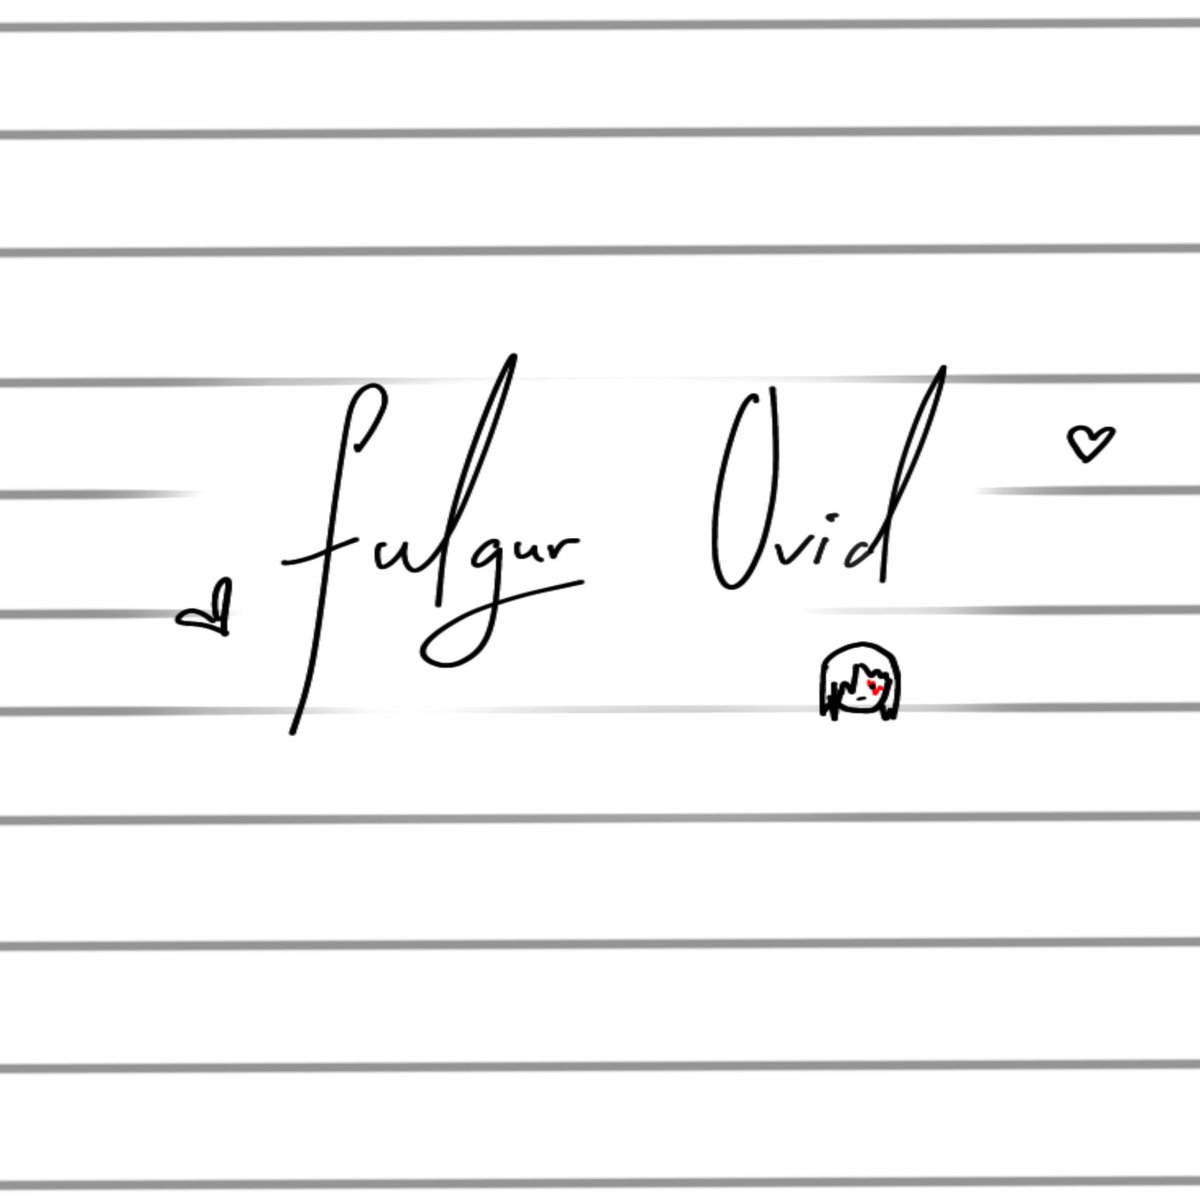 fulgur Ovid